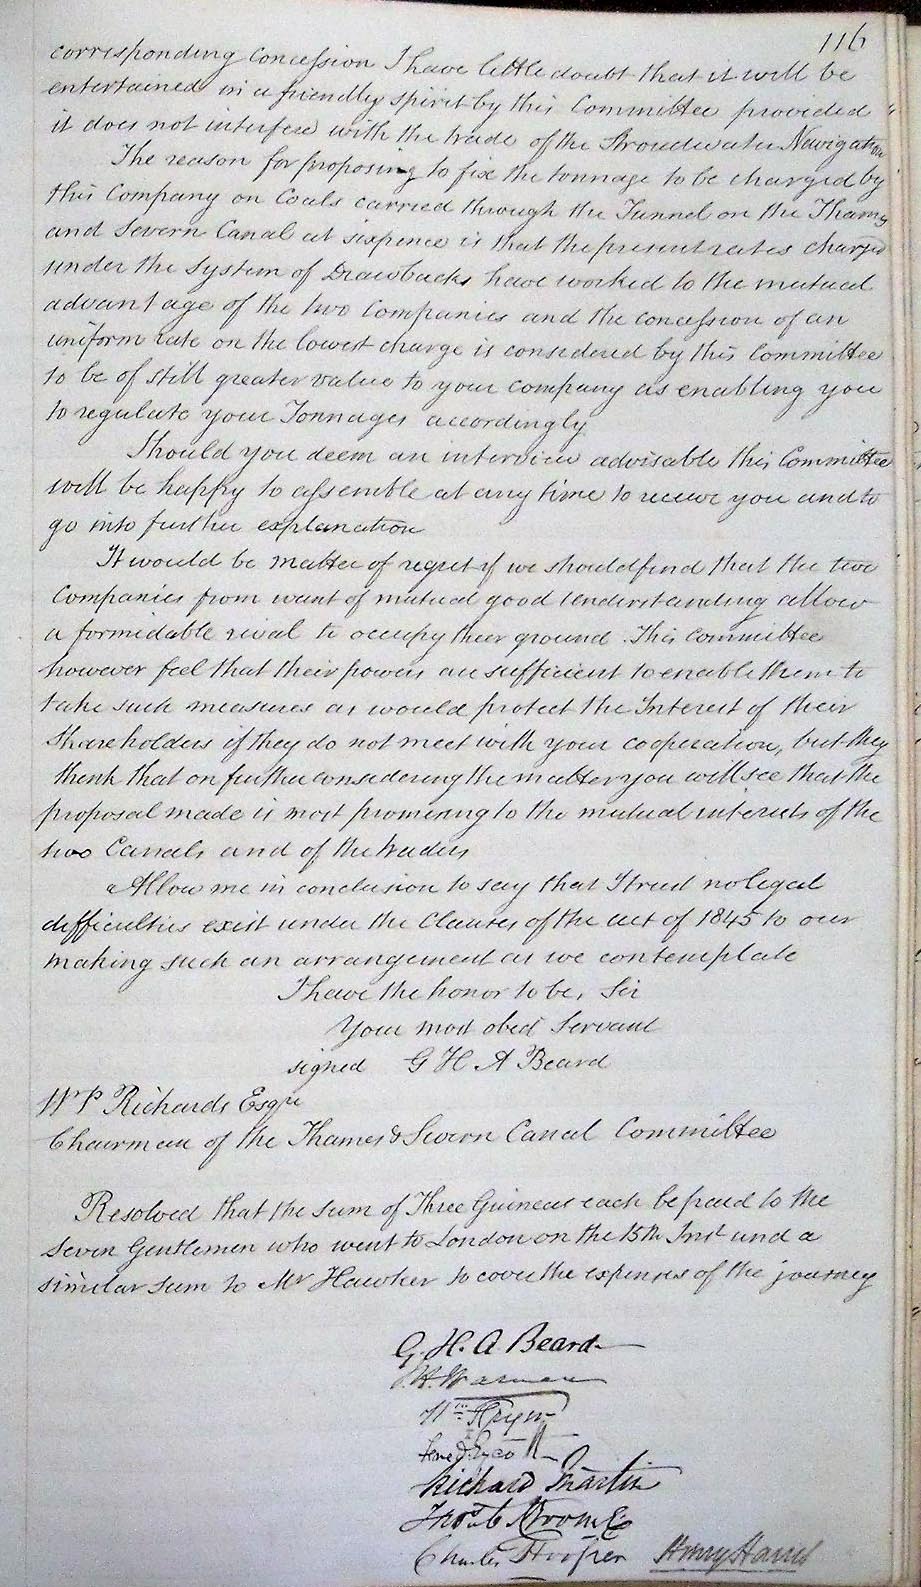 116
corresponding concession I have little doubt that it will be
entertained in a friendly spirit by this Committee provided
it does not interfere with the trade of the Stroudwater Navigation
The reason for proposing to fix the tonnage to be charged by
this Company on Coals carried through the Tunnel on the Thames
and Severn Canal at sixpence is that the present rates charged
under the system of Drawbacks have worked to the mutual
advantage of the two Companies and the concession of an
uniform rate on the lowest charge is considered by this Committee
to be of still greater value to your company as enabling you
to regulate your Tonnages accordingly
Should you deem an interview advisable this Committee
will be happy to assemble at any time to receive you and to
go into further explanation
It would be matter of regret if we should find that the two
Companies from want of mutual good understanding allow
a formidable rival to occupy their ground. This Committee
however feel that their powers are sufficient to enable them to
take such measures as would protect the Interest of their
Shareholders if they do not meet with your cooperation, but they
think that on further considering the matter you will see that the
proposal made is most promising to the mutual interests of the
two Canals and of the traders
Allow me in conclusion to say that I trust no legal
difficulties exist under the Clauses of the act of 1845 to our
making such an arrangement as we contemplate
I have the honor to be, Sir
Your most obed Servant
signed G H A Beard
Wm P Richards Esqre
Chairman of the Thames & Severn Canal Committee
Resolved that the sum of Three Guineas each be paid to the
Seven Gentlemen who went to London on the 15th Inst and a
similar sum to Mr Hawker to cover the expenses of the journey
G. H. A. Beard
Richard Martin
Charles Hooper Henry Harris